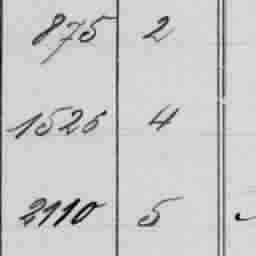 875 2
1526 4
2110 5